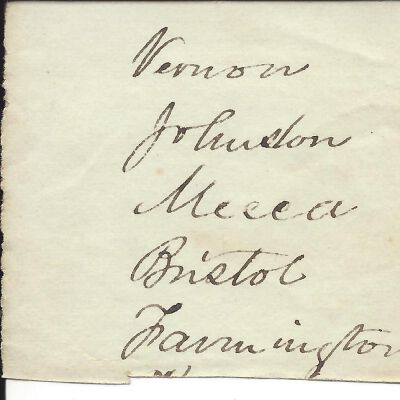 Vernon
Johnston
Mecca
Bristol
Farmington